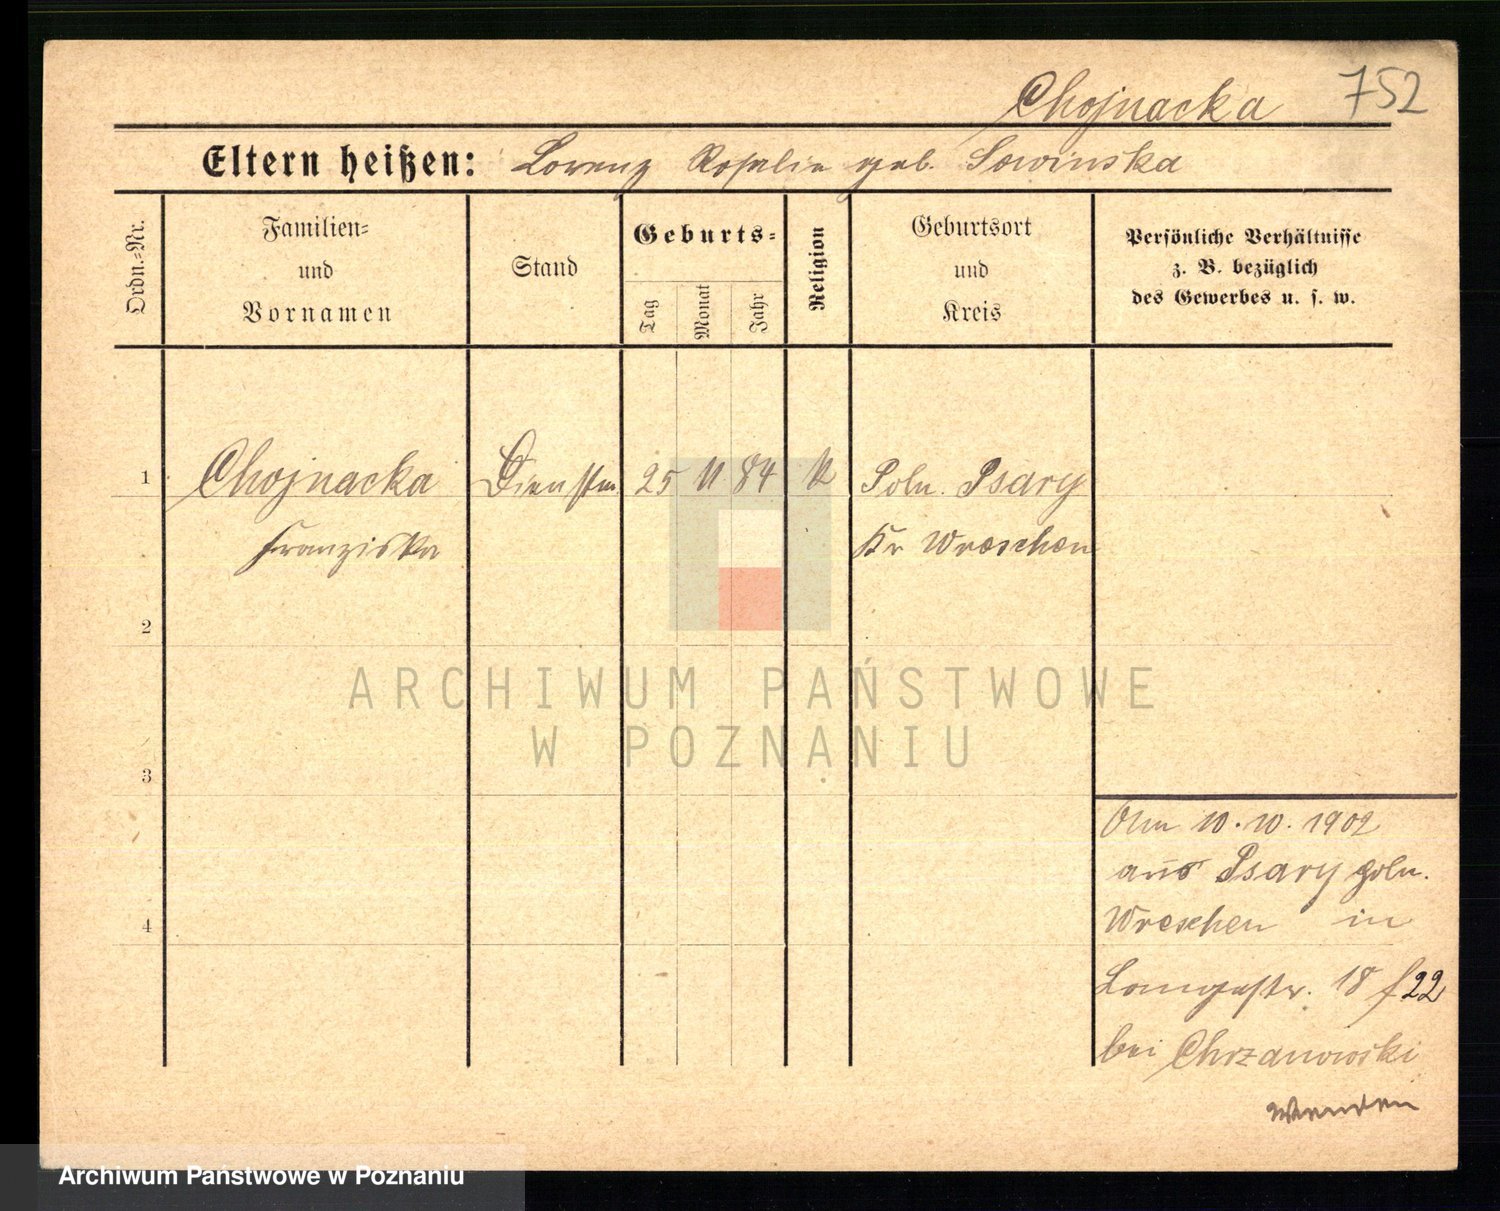 Chojnacka 752
Eltern heißen: Lorenz Rosalie geb. Sowinska
Ordn.-Nr.
Familien-
und
Vornamen
Stand
Geburts-
Tag
Monat
Jahr
Religion
Geburtsort
und
Kreis
Persönliche Verhältnisse
z. B. bezüglich
des Gewerbes u. s. w.
1 Chojnacka Dienstm 25 11 84 K Poln. Psary
Franziska Kr Wreschen
2
3
4
Am 10.10.1902
aus Psary poln.
Wreschen in
Langestr. 18 f 22
bei Chrzanowski
Wenden
ARCHIWUM PAŃSTWOWE
W POZNANIU
Archiwum Państwowe w Poznaniu